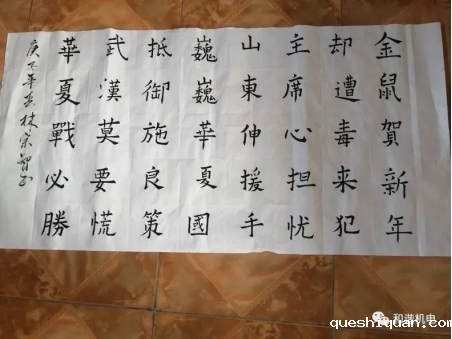 金鼠賀新年
却遭毒来犯
主席心担忧
山東伸援手
巍巍華夏國
抵御施良策
武漢莫要慌
華夏戰必勝
庚子年春林宗智书
和谐机电
queshiquan.com